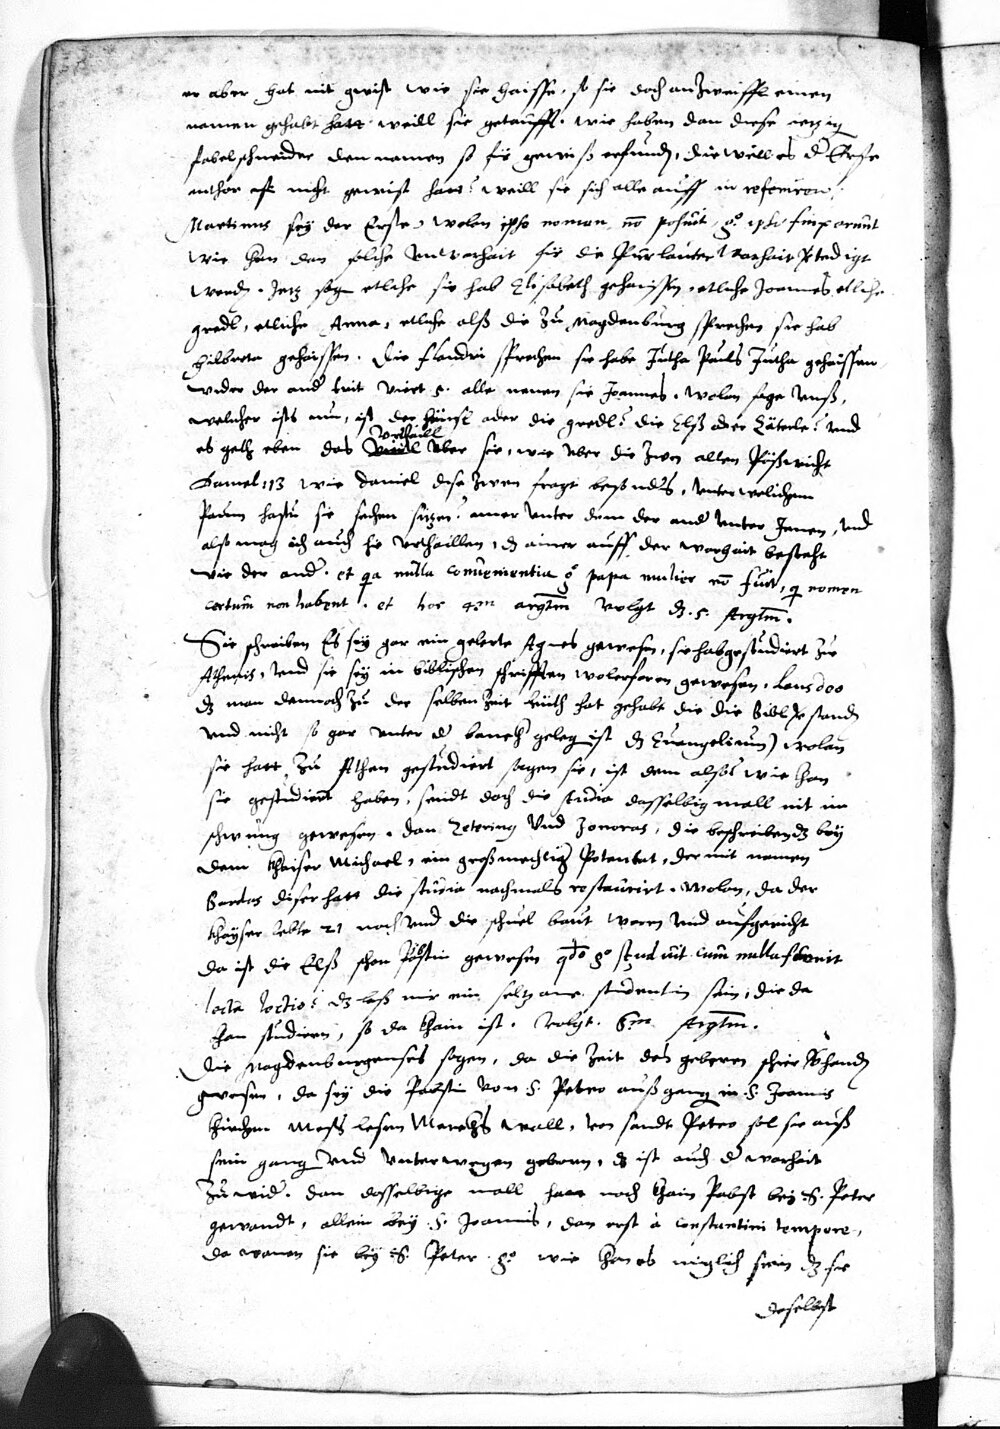 er aber hat nit gwist wie sie haisse, so sie doch anzweiffl einen
namen gehabt hatt weill sie getaufft. wie haben dan diese ietzig
fabelschneider den namen so für gewiß erfunden, die weill es d Erste
author nicht gewist hatt? weill sie sich alle auff in referiren.
Martinus sey der Erste, wolan ipse nomen nõ posuit, gº ipsi finxerunt
wie kan dan solche unwarheit für die Pur lauter warheit Predigt
werden. Jetz sagen etliche sie hab Elisabeth gehaissen, etliche Joannes etliche
gredl, etliche Anna, etliche alß die zu Magdenburg sprechen sie hab
gilberta gehaissen. Die flandri sprechen sie habe Jutha Pauls Jutha gehaissen
wider der and trit alle nenen sie Joannes. wolan sage unß,
welcher ists nu, ist der hänsl oder die gredl? die Elß oder Käterle? und
es geth eben das urthaill uber sie, wie uber die zwen alten Pößwicht
Daniel 13 wie Daniel dise zwen fragt besonders, unter welichem
Paum hastu sie sechen sitzen? ainer unter dem der and unter Jenen, und
also mag ich auch hie urthaillen, dz ainer auff der worhait besteht
wie der and. et qa nulla convenientia gº papa mulier nõ fuit, q nomen
certum non habent. et hoc 4tm argtm volgt dz .5. Argtm.
Sie schreiben Es sey gar ein gelerte Agnes gewesen, sie hab gestudiert zue
Athenis, und sie sey in biblischen schrifften wolerfaren gewesen, Laus deo
dz man dennoch zu der selben zeit leuth hat gehabt die die Bibl verstanden
und nicht so gar unter d banck gelegen ist dz Euangelium) wolan
sie hatt zu Athen gestudiert sagen sie, ist dem also? wie kan
sie gestudiert haben, seindt doch die studia dasselbig mall nit im
schwung gewesen. dan und Zonoras, die beschreiben dz bey
dem Khaiser Michael, ein großmechtig Potentat, der mit namen
Bardas diser hatt die studia nachmals restaurirt. wolan, da der
khayser lebte 21 nach und die schuel baut worn und aufgericht
da ist die Elß schon Päbstin gewesen qdo gº studuit cum nulla fuerit
lecta lectio? dz laß mir ein seltzame studentin sein, die da
kan studiern, so da khain ist. volgt. 6m Argtm.
Die Magdenburgenses sagen, da die zeit des geberen schier vorhanden
gewesen, da sey die Päbstin von S. Petro auß gang in S. Joannis
kirchen Meß lesen wall, von sandt Peter sol sie auß
sein gang und unterwegen geborn, dz ist auch d warheit
zuwid. dan dasselbige mall hatt noch khain Pabst bey S. Peter
gewandt, allein bey S. Joannis, dan erst à constantini tempore,
da wonen sie bey S. Peter gº wie kan es miglich sein dz sie
daselbst